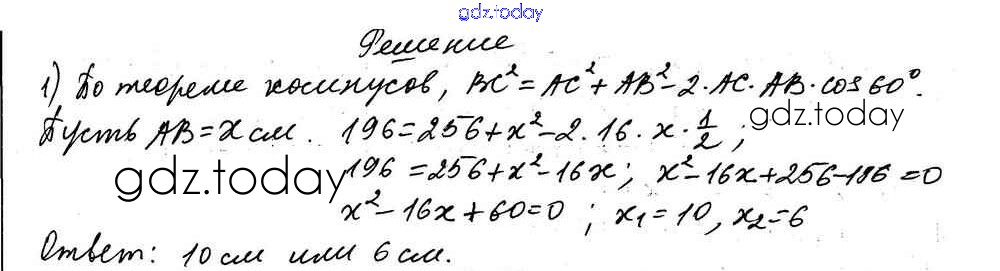 gdz.today
Решение
1) По теореме косинусов, BC² = AC² + AB² - 2·AC·AB·cos 60°.
Пусть AB = x см. 196 = 256 + x² - 2·16·x·1/2; gdz.today
gdz.today 196 = 256 + x² - 16x; x² - 16x + 256 - 196 = 0
x² - 16x + 60 = 0; x₁ = 10, x₂ = 6
Ответ: 10 см или 6 см.